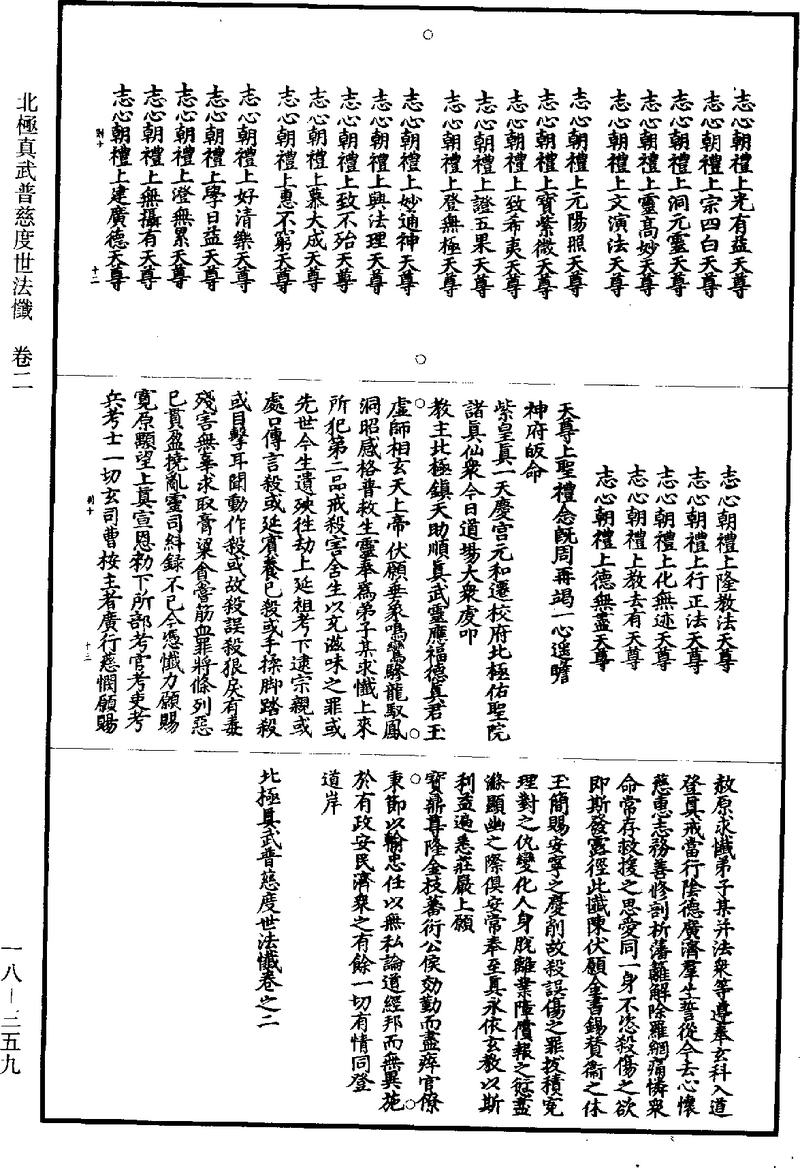 北極真武普慈度世法懺　卷二
志心朝禮上光有益天尊
志心朝禮上宗四白天尊
志心朝禮上洞元靈天尊
志心朝禮上靈高妙天尊
志心朝禮上文演法天尊
志心朝禮上元陽照天尊
志心朝禮上寶紫微天尊
志心朝禮上致希夷天尊
志心朝禮上證五果天尊
志心朝禮上登無極天尊
志心朝禮上妙通神天尊
志心朝禮上興法理天尊
志心朝禮上致不殆天尊
志心朝禮上慕大成天尊
志心朝禮上惠不窮天尊
志心朝禮上好清樂天尊
志心朝禮上學日益天尊
志心朝禮上澄無累天尊
志心朝禮上無攝有天尊
志心朝禮上建廣德天尊
十二
志心朝禮上隆教法天尊
志心朝禮上行正法天尊
志心朝禮上化無迹天尊
志心朝禮上教去有天尊
志心朝禮上德無盡天尊
天尊上聖禮念既周再竭一心遥瞻
神府皈命
紫皇真一天慶宫元和遷校府北極佑聖院
諸真仙衆今日道場大衆虔叩
教主北極鎮天助順真武靈應福德真君玉
虛師相玄天上帝伏願垂象鳴鸞驂龍馭鳳
洞昭感格普救生靈奉爲弟子某求懺上來
所犯第二品戒殺害含生以充滋味之罪或
先世今生遺殃往劫上延祖考下逮宗親或
處口傳言殺或延賓養已殺或手操脚踏殺
或目擊耳聞動作殺或故殺誤殺狠戾有毒
殘害無辜求取膏粱貪嘗筋血罪將條列惡
已貫盈撓亂靈司糾録不已今憑懺力願賜
寛原願望上真宣恩勑下所部考官考吏考
兵考士一切玄司曹按主者廣行慈憫願賜
十三
赦原求懺弟子某并法衆等遵奉玄科入道
登真戒當行陰德廣濟羣生誓從今去心懷
慈惠志務善修剖析藩籬解除羅網痛憐衆
命常存救援之思愛同一身不恣殺傷之欲
即斯發露徑此懺陳伏願金書錫賛衛之休
玉簡賜安寧之慶削故殺誤傷之罪拔積寃
理對之仇變化人身脱離業障償報之愆盡
滌顯幽之際俱安常奉至真永依玄教以斯
利益遍悉莊嚴上願
寶鼎尊隆金枝蕃衍公侯効勤而盡瘁官僚
秉節以輸忠任以無私論道經邦而無異施
於有政安民濟衆之有餘一切有情同登
道岸
北極真武普慈度世法懺卷之二
一八－三五九